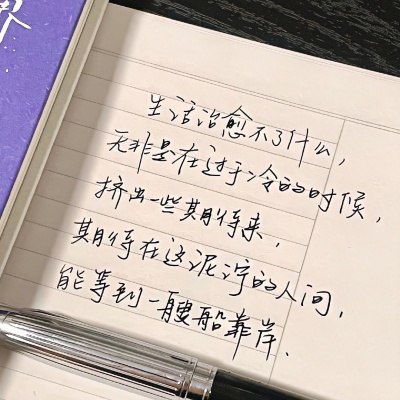 界
生活治愈不了什么,
无非是在过于冷的时候,
挤出一些期待来,
期待在这泥泞的人间,
能等到一艘船靠岸.